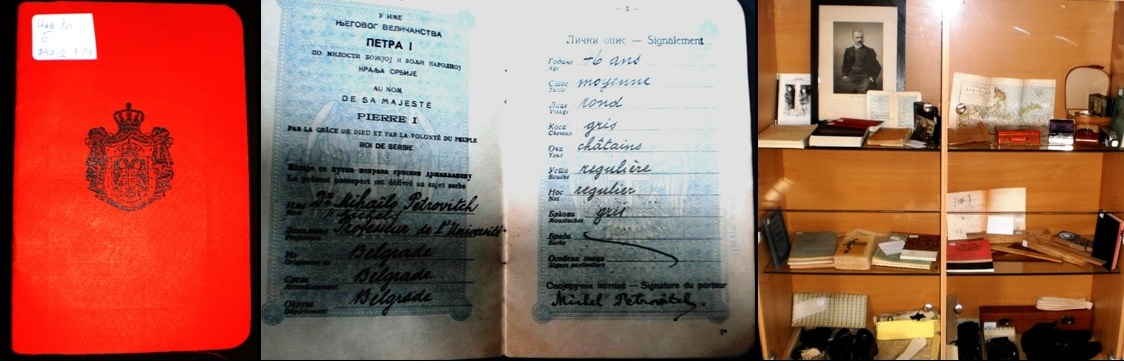 У ИМЕ
ЊЕГОВОГ ВЕЛИЧАНСТВА
ПЕТРА I
ПО МИЛОСТИ БОЖЈОЈ И ВОЉИ НАРОДНОЈ
КРАЉА СРБИЈЕ
AU NOM
DE SA MAJESTÉ
PIERRE I
PAR LA GRÂCE DE DIEU ET PAR LA VOLONTÉ DU PEUPLE
ROI DE SERBIE
Le présent passeport est délivré au sujet serbe
Име Dr Mihaïlo Petrovitch
Nom
Professeur de l'Université
Profession
Из Belgrade
Originaire de
Срез Belgrade
Округ Belgrade
Département
— 2 —
Лични опис — Signalement
Године 46 ans
Age
Стас moyenne
Taille
Лице rond
Visage
Коса gris
Cheveux
Очи châtains
Yeux
Уста regulière
Bouche
Нос regulier
Nez
Бркови gris
Moustaches
Брада
Barbe
Особени знаци
Signes particuliers
Својеручни потпис — Signature du porteur
Michel Petrovitch.